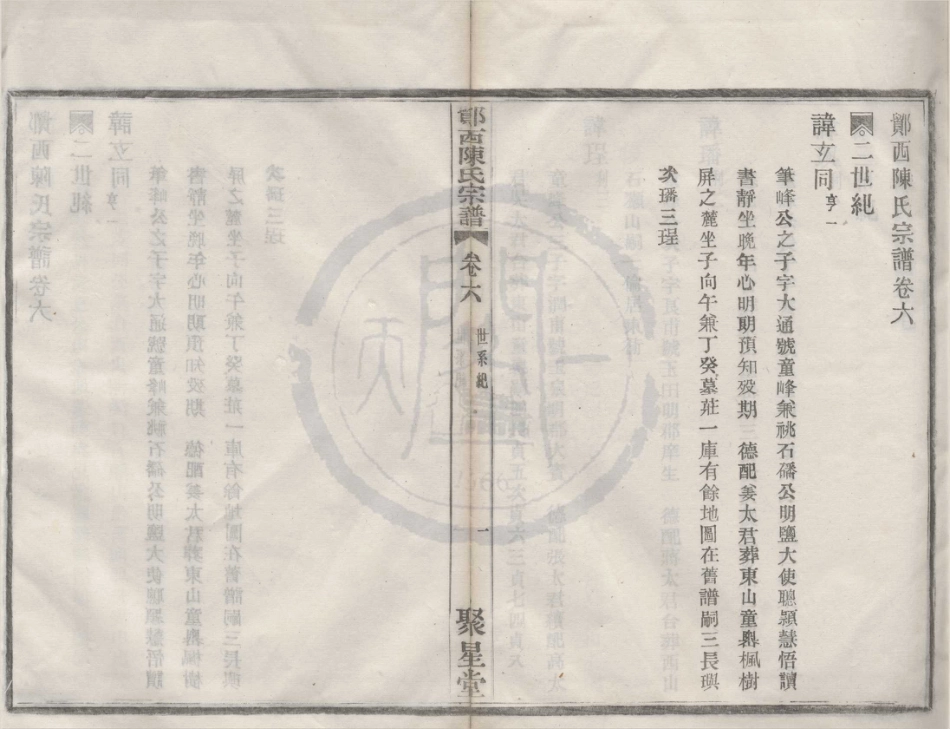 鄭西陳氏宗譜卷六
二世紀
諱立同亨一
筆峰公之子字大通號童峰兼祧石磻公明鹽大使聰穎慧悟讀
書靜坐晚年心明期預知歿期 德配姜太君葬東山童嶴楓樹
屏之麓坐子向午兼丁癸墓莊一庫有餘地圖在舊譜嗣三長璵
次璠三珵
鄭西陳氏宗譜
卷六
世系紀
一
聚星堂